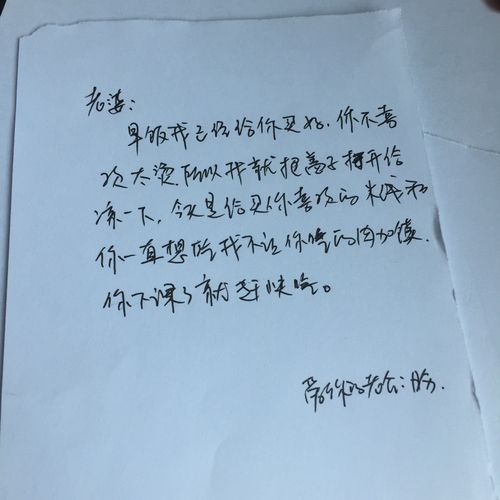 老婆：
早饭我已经给你买好，你不喜
欢太烫所以我就把盖子打开给
凉一下，今天是给买你喜欢的米线和
你一直想吃我不让你吃的肉加馍，
你下课了就赶快吃。
爱你的老公：